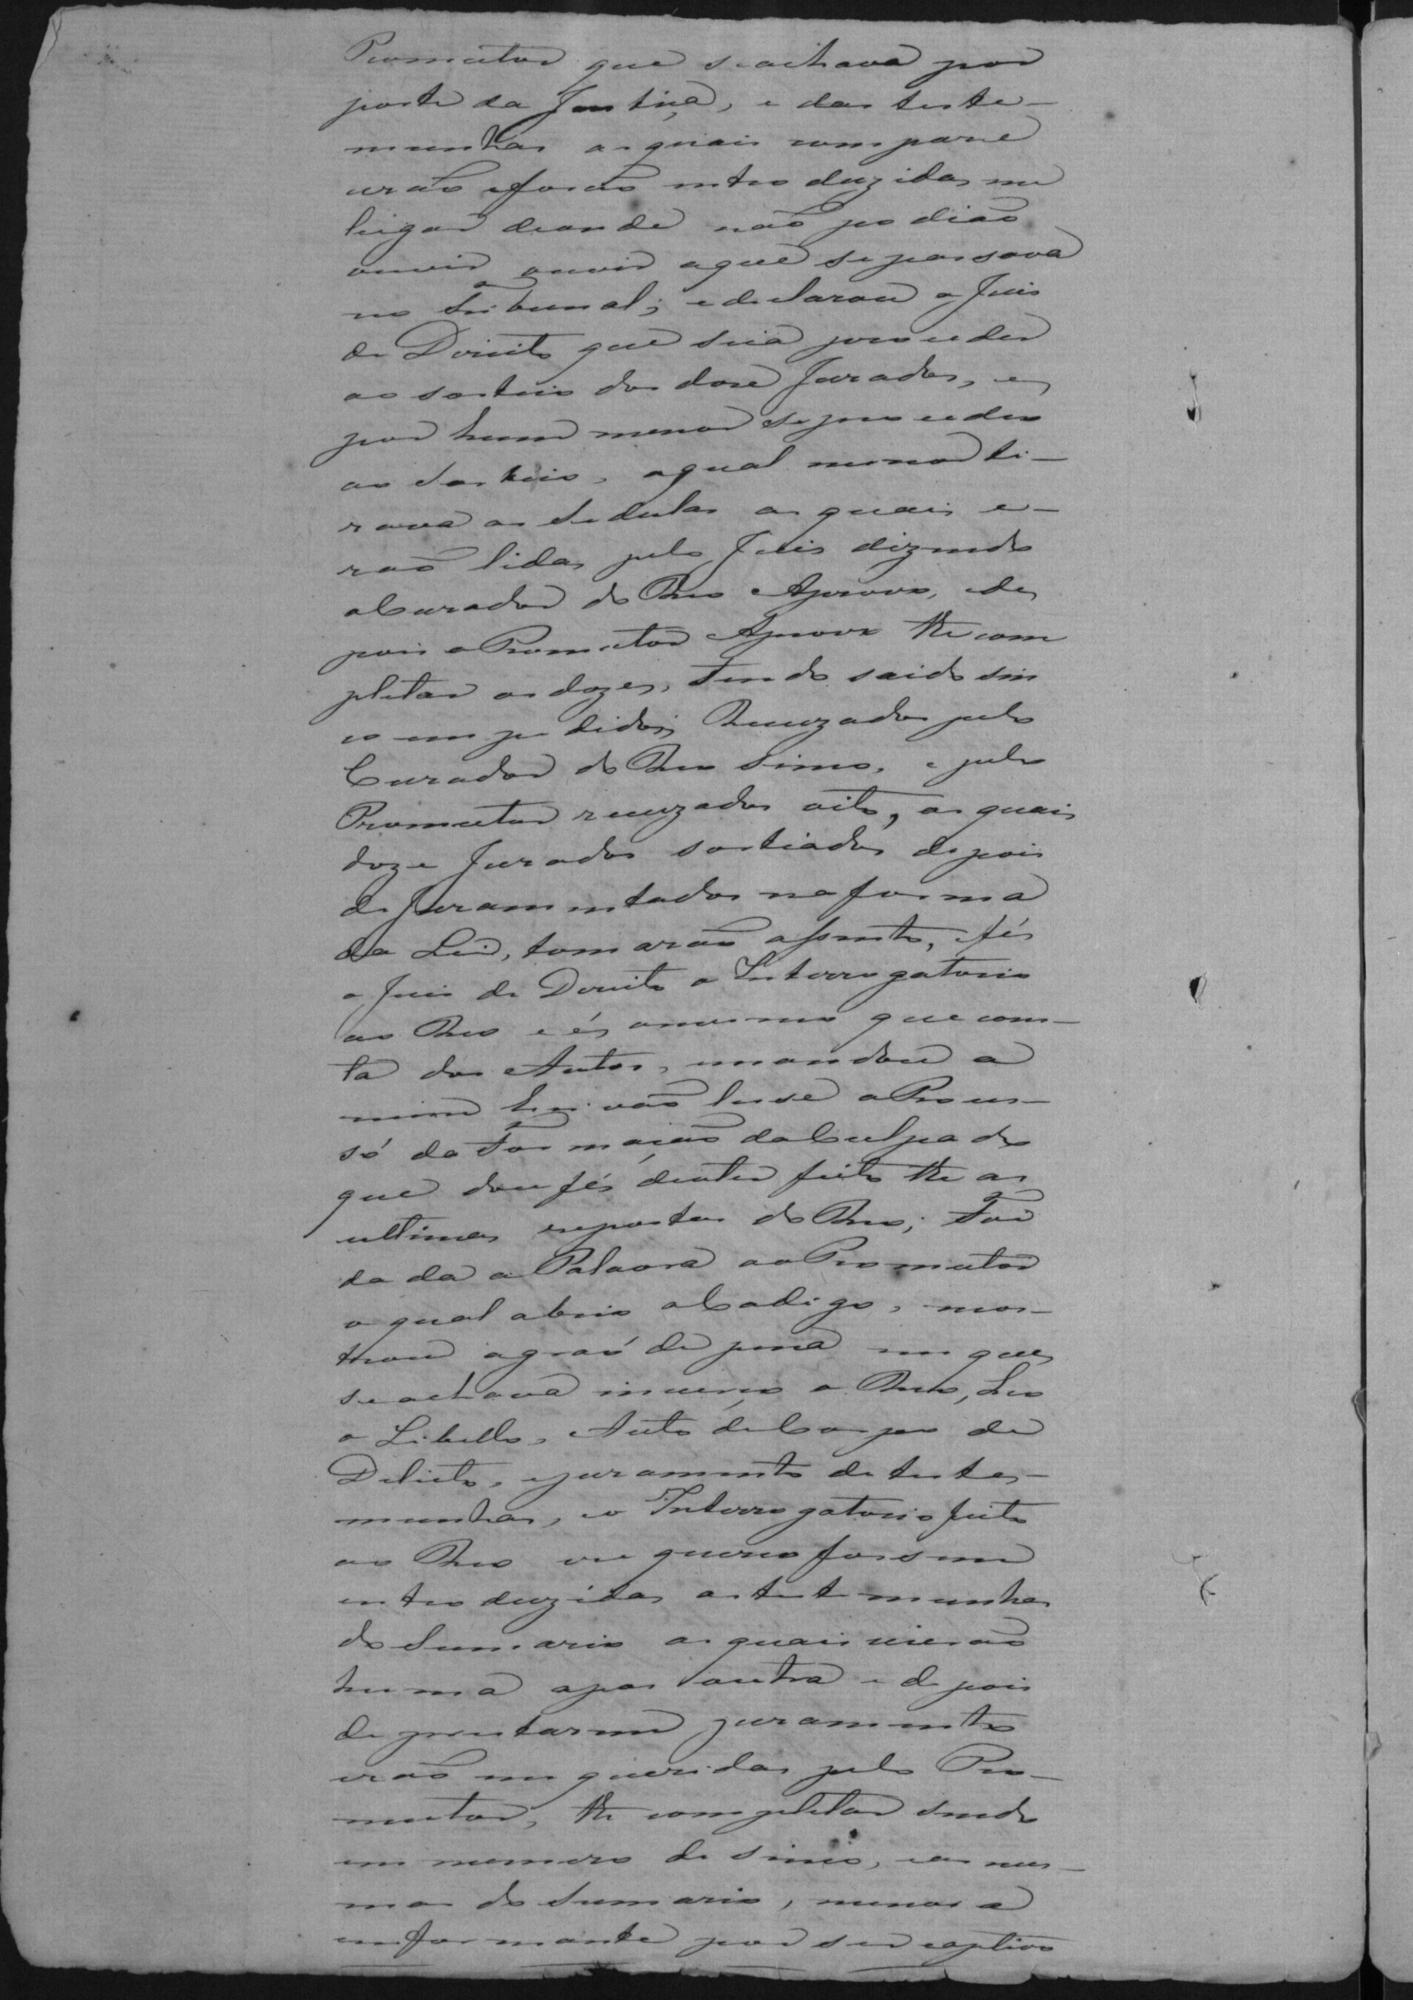 Promutor que seachava por
parte da Justiça, e das teste-
munhas as quais compare
cerão eforão introduzidas em
lugar deonde não podião
ouvir ouvir aque sepassava
no Tribunal; edeclarou o Juis
de Direito que seia proceder
ao sorteio dos dose Jurados, e
por hum menor seprocedeo
ao sorteio, oqual menor ti-
rava as sedulas as quais e-
rão lidas pelo Juis dizendo
oCurador do Reo Aprovo, ede
pois oPromutor Aprovo the com
pletar os doze, tendo saido sin
co impedidos; Recuzados pelo
Curador do Reo sinco, e pelo
Promutor recuzados oito, os quais
doze Jurados sortiados depois
deJuramentados na forma
da Lei, tomarão assento, fés
o Juis de Direito o Interrogatorio
ao Reo e és omesmo que cons-
ta dos Autos, mandou a
mim Escrivão lesse oProces-
só da Formação daCulpa do
que dou fés deoter feito the as
ultimas respostas do Reo; Foi
dada a Palavra aoPromutor
o qual abrio oCodigo, mos-
trou ográo de pena em que
seachava incurço o Reo, Leo
o Libello, Auto deCorpo de
Delicto, ejuramento de teste-
munhas, eo Interrogatorio feito
ao Reo e requereo fossem
introduzidas astestemunhas
do Sumario as quais vierão
huma apos outra e depois
deprestarem juramento
erão enqueridas pelo Pro-
mutor, the completar sendo
em numero de sinco, eas mes-
mas do Sumario, menos a
informante por ser captivo